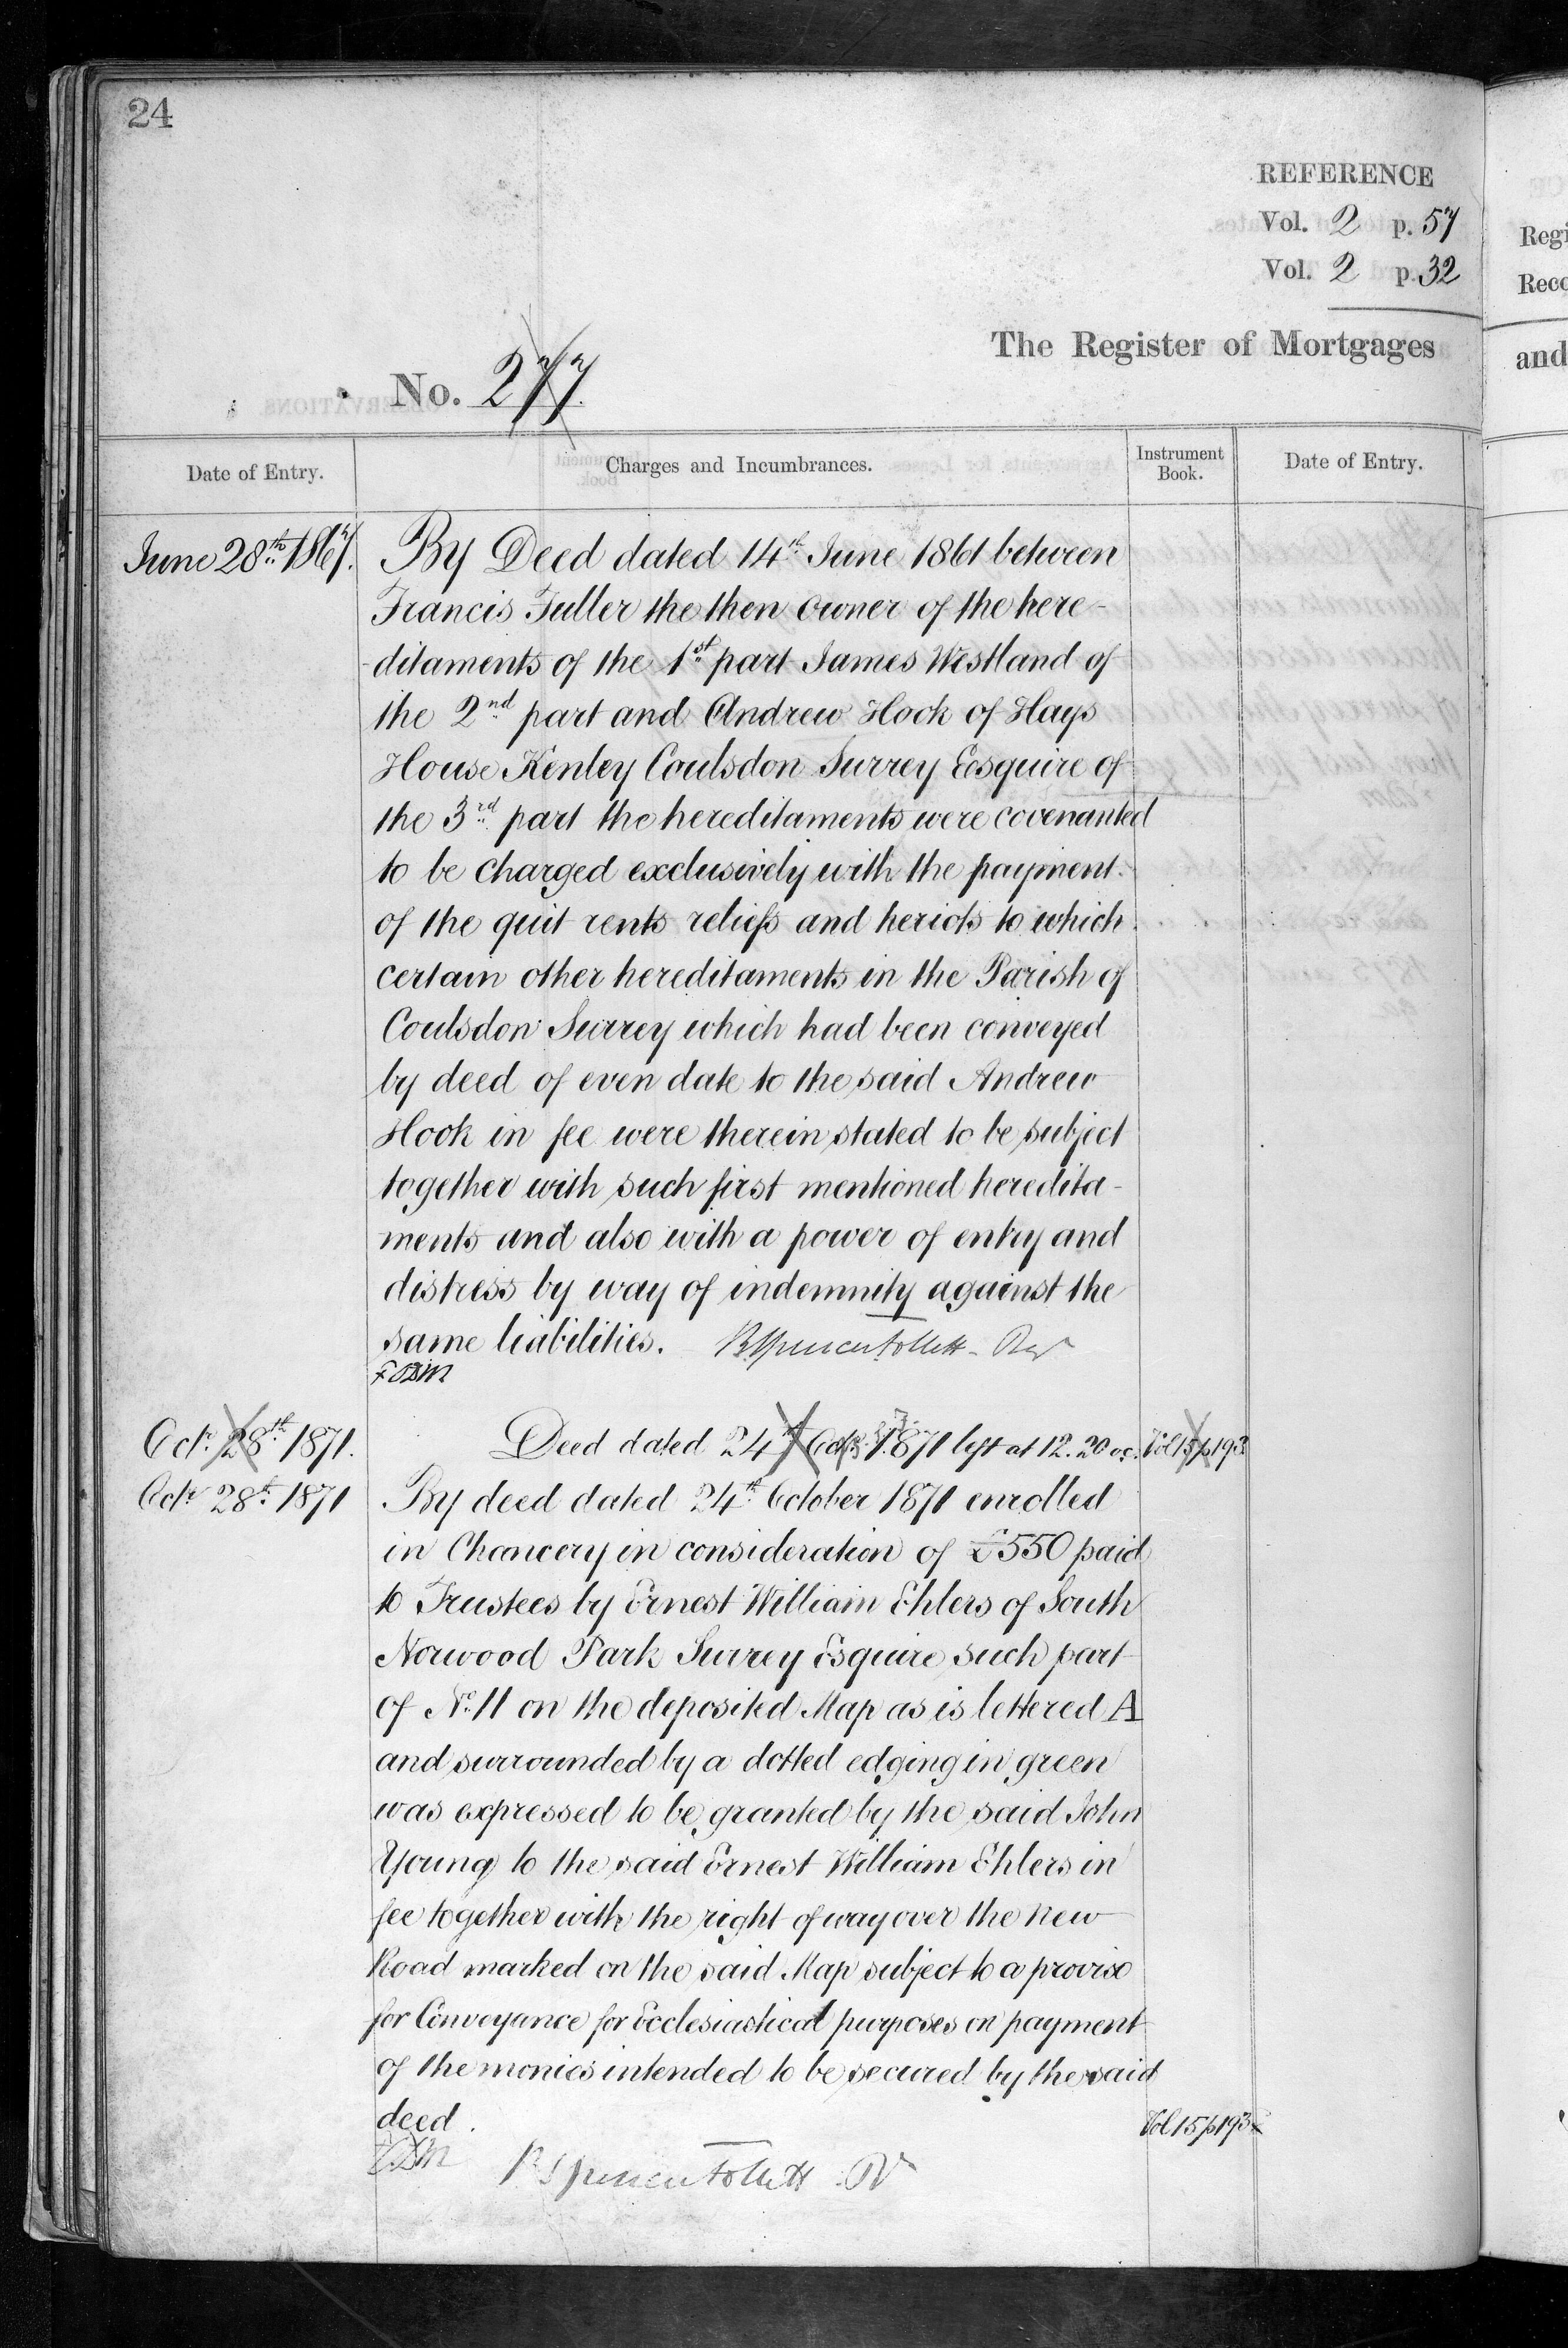 24
REFERENCE
Vol. 2 p. 57
Vol. 2 p. 32
The Register of Mortgages
No. 277.
Date of Entry.
Charges and Incumbrances.
Instrument Book.
Date of Entry.
June 28th 1867. By Deed dated 14th June 1861 between
Francis Fuller the then owner of the here-
-ditaments of the 1st part James Westland of
the 2nd part and Andrew Hook of Hays
House Kenley Coulsdon Surrey Esquire of
the 3rd part the hereditaments were covenanted
to be charged exclusively with the payment
of the quit rents reliefs and heriots to which
certain other hereditaments in the Parish of
Coulsdon Surrey which had been conveyed
by deed of even date to the said Andrew
Hook in fee were therein stated to be subject
together with such first mentioned heredita-
ments and also with a power of entry and
distress by way of indemnity against the
same liabilities. B Spencer Follett - Rer
Octr. 28th 1871. Deed dated 24th Octr. 1871 left at 12.20 oc. Vol 15 p 193
Octr 28th 1871 By deed dated 24th October 1871 enrolled
in Chancery in consideration of £550 paid
to Trustees by Ernest William Ehlers of South
Norwood Park Surrey Esquire such part
of No. 11 on the deposited Map as is lettered A
and surrounded by a dotted edging in green
was expressed to be granted by the said John
Young to the said Ernest William Ehlers in
fee together with the right of way over the New
Road marked on the said Map subject to a proviso
for Conveyance for Ecclesiastical purposes on payment
of the monies intended to be secured by the said
deed. Vol 15 p 193
B Spencer Follett
Regi
Reco
and